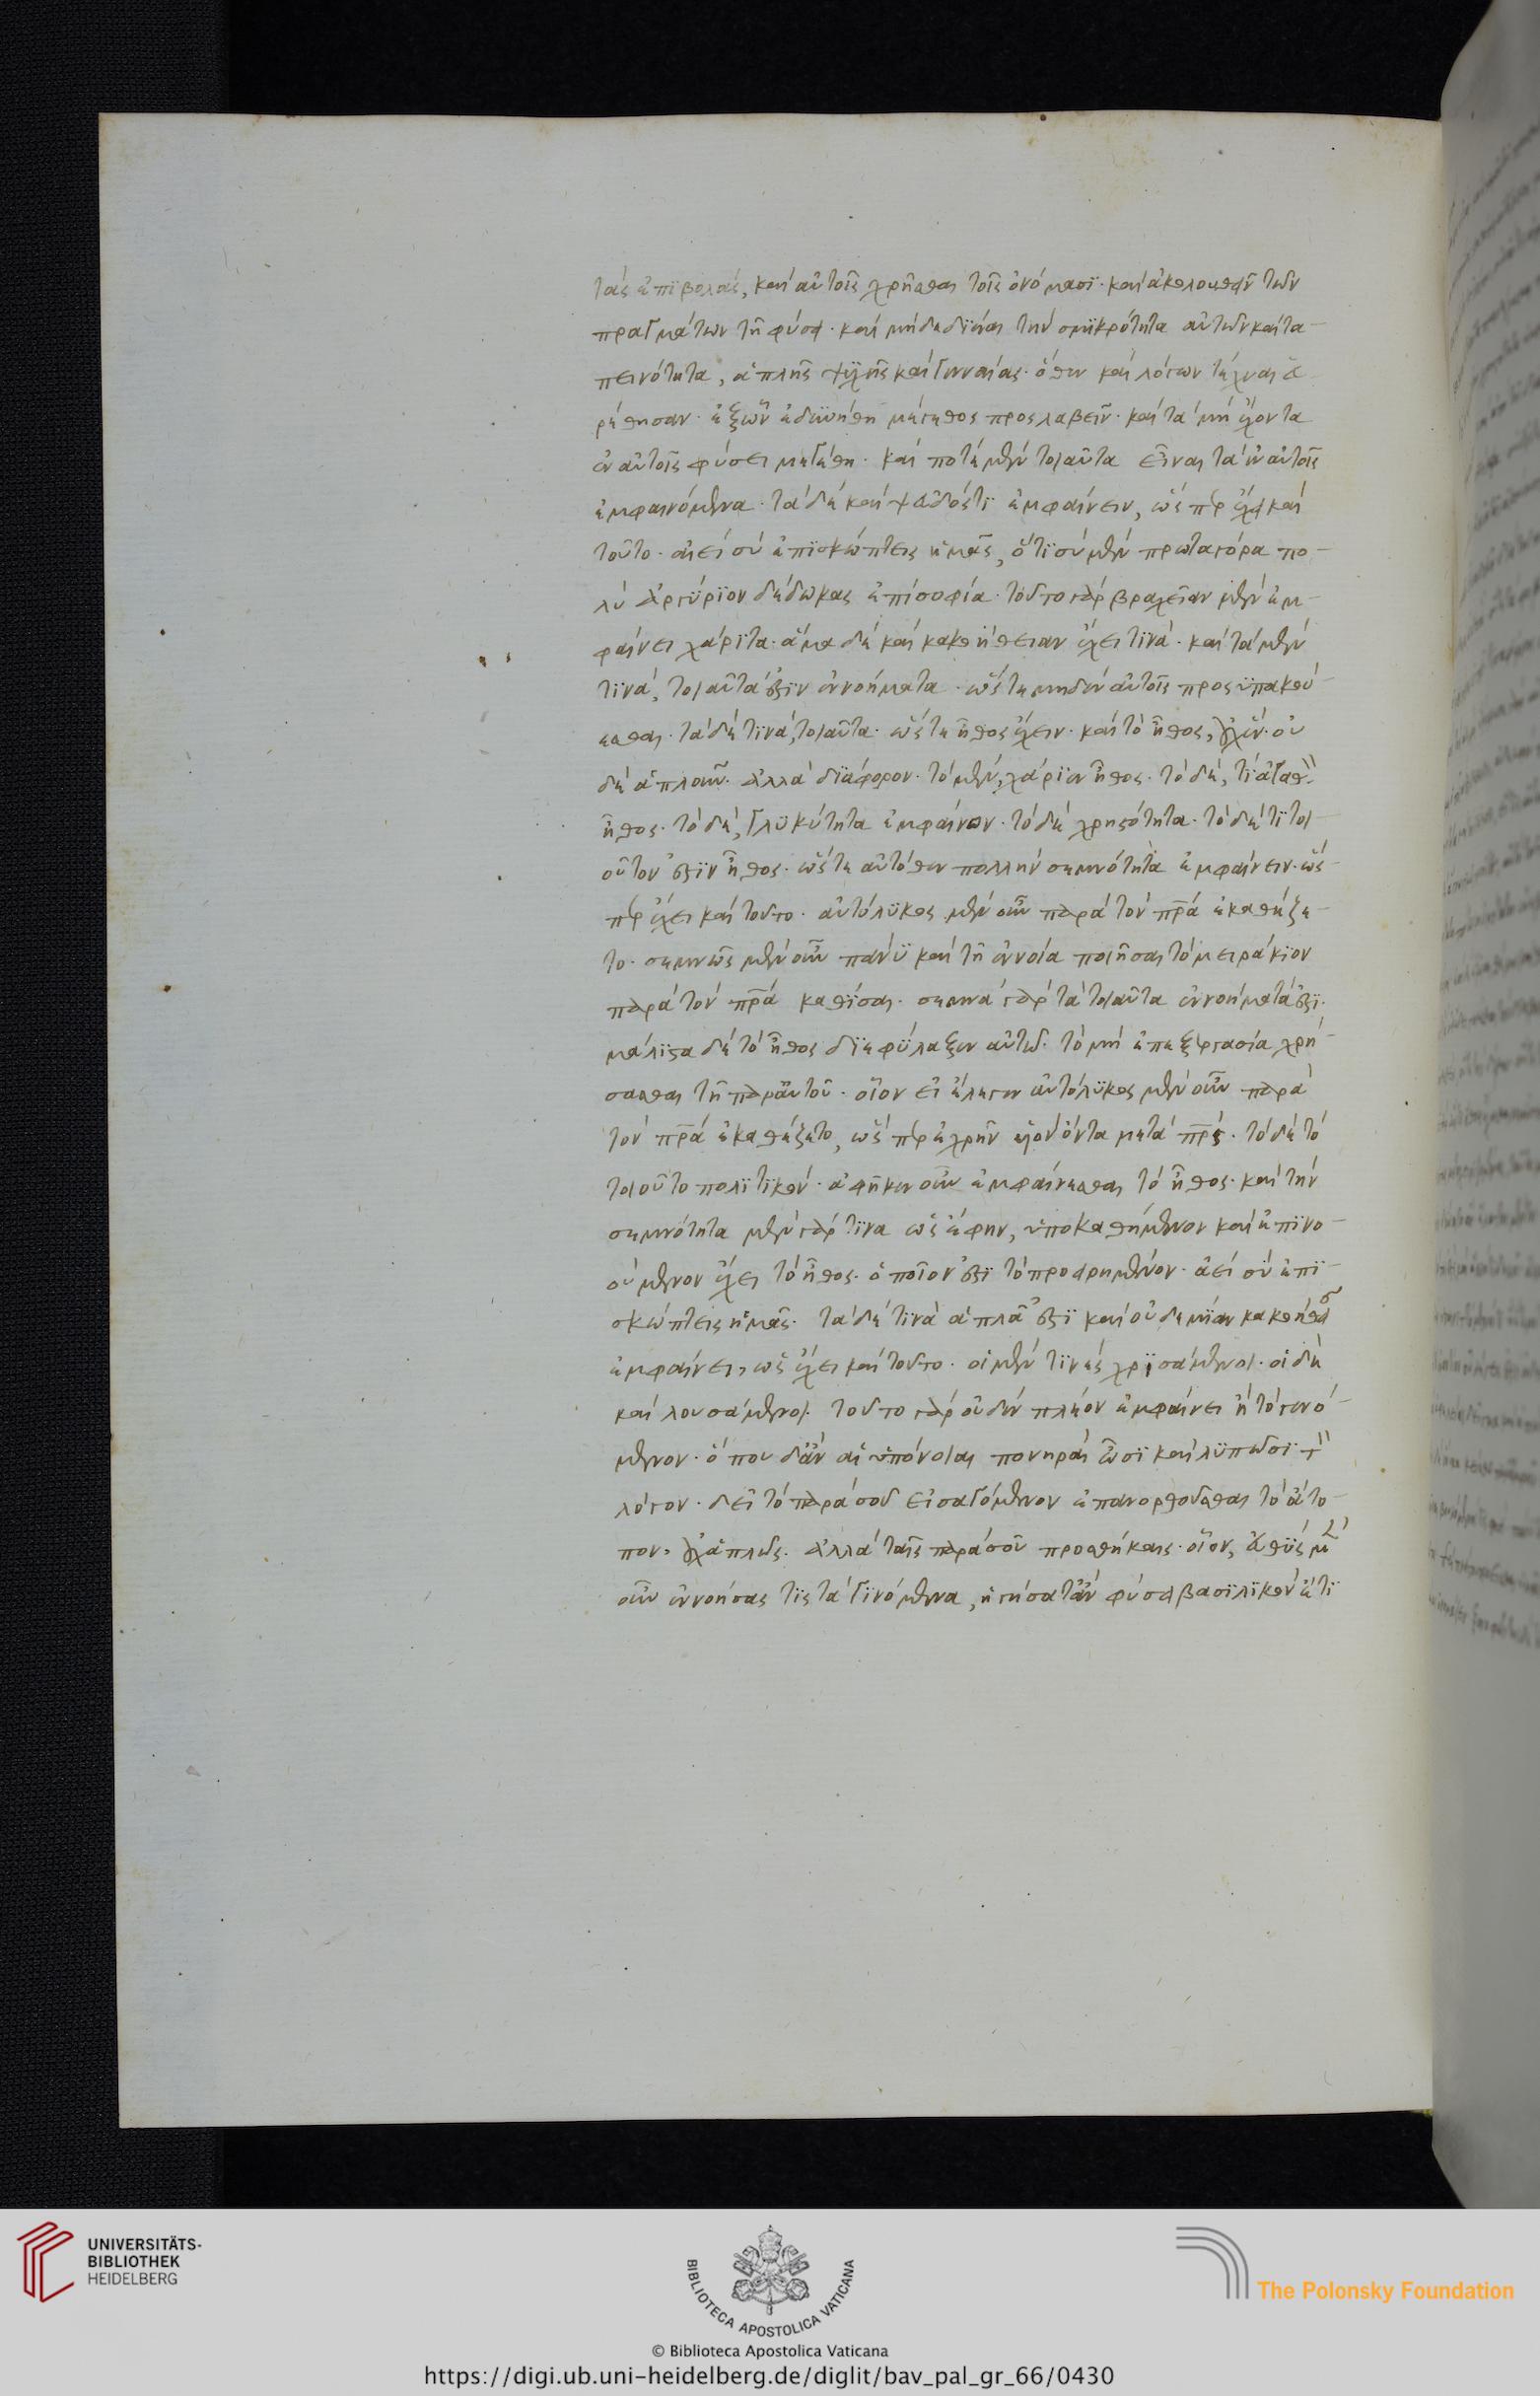 τὰς ἐπιβολάς, καὶ αὐτοῖς χρῆσθαι τοῖς ὀνόμασι· καὶ ἀκολουθεῖν τῶν
πραγμάτων τῆ φύσει· καὶ μὴ δεδιέναι τὴν σμικρότητα αὐτῶν καὶ τα-
πεινότητα, ἁπλῆς ψυχῆς καὶ γενναίας· ὅθεν καὶ λόγων τέχναι
ρέθησαν· ἐξ ὧν ἐδυνήθη μέγεθος προσλαβεῖν· καὶ τὰ μὴ ἔχοντα
ἐν αὐτοῖς φύσει μεγέθη· καὶ ποτὲ μὲν τοιαῦτα εἶναι τὰ ἐν αὐτοῖς
ἐμφαινόμενα· τὰ δὲ καὶ ψεῦδός τι ἐμφαίνειν, ὥσπερ ἔχει καὶ
τοῦτο· αἰεὶ σὺ ἐπισκώπτεις ἡμᾶς, ὅτι σὺ μὲν πρωταγόρα πο-
λὺ ἀργύριον δέδωκας ἐπὶ σοφία· τοῦτο γὰρ βραχεῖαν μὲν ἐμ-
φαίνει χάριτα· ἅμα δὲ καὶ κακοήθειαν ἔχει τινά· καὶ τὰ μὲν
τινά, τοιαῦτά ἐστιν ἐννοήματα· ὥστε μηδὲν αὐτοῖς προσυπακού-
εσθαι· τὰ δέ τινα, τοιαῦτα· ὥστε ἦθος ἔχειν· καὶ τὸ ἦθος, οὐχ ἕν· οὐ
δὲ ἁπλοῦν· ἀλλὰ διάφορον· τὸ μὲν, χάριεν ἦθος· τὸ δέ, τι ἀγαθὸν
ἦθος· τὸ δέ, γλυκύτητα ἐμφαίνον· τὸ δὲ χρηστότητα· τὸ δέ τι τοι
οῦτον ἐστὶν ἦθος· ὥστε αὐτόθεν πολλὴν σεμνότητα ἐμφαίνειν· ὥσ-
περ ἔχει καὶ τοῦτο· αὐτόλυκος μὲν οὖν παρὰ τὸν πρα ἐκαθέζε-
το· σεμνῶς μὲν οὖν πάνυ καὶ τῆ ἐννοία ποιῆσαι τὸ μειράκιον
παρὰ τὸν πρα καθίσαι· σεμνὰ γὰρ τὰ τοιαῦτα ἐννοήματά ἐστι·
μάλιστα δὲ τὸ ἦθος διεφύλαξεν αὐτῶ· τὸ μὴ ἐπεξεργασία χρή-
σασθαι τῆ παρ' αὐτοῦ· οἷον εἰ ἔλεγεν αὐτόλυκος μὲν οὖν παρὰ
τὸν πρα ἐκαθέζετο, ὥσπερ ἐχρῆν υἱὸν ὄντα μετὰ πρς· τὸ δὲ τὸ
τοιοῦτο πολιτικόν· ἀφῆκεν οὖν ἐμφαίνεσθαι τὸ ἦθος· καὶ τὴν
σεμνότητα μὲν γάρ τινα ὡς ἔφην, ὑποκαθήμενον καὶ ἐπινο-
ούμενον ἔχει τὸ ἦθος· ὁποῖον ἐστὶ τὸ προειρημένον· ἀεὶ σὺ ἐπι-
σκώπτεις ἡμᾶς· τὰ δέ τινα ἁπλᾶ ἐστὶ καὶ οὐδεμίαν κακοήθειαν
ἐμφαίνει, ὡς ἔχει καὶ τοῦτο· οἱ μέν τινες χρισάμενοι· οἱ δὲ
καὶ λουσάμενοι· τοῦτο γὰρ οὐδὲν πλέον ἐμφαίνει ἢ τὸ γενό-
μενον· ὅπου δ' ἂν αἱ ὑπόνοιαι πονηραὶ ὦσι καὶ λυπῶσι τὸν
λόγον· δεῖ τὸ παρὰ σοῦ εἰσαγόμενον ἐπανορθοῦσθαι τὸ ἄτο-
πον, οὐχ ἁπλῶς· ἀλλὰ ταῖς παρὰ σοῦ προσθήκαις· οἷον, εὐθὺς μὲν
οὖν ἐννοήσας τις τὰ γινόμενα, ἡγήσατ' ἂν φύσει βασιλικόν ἔτι
UNIVERSITÄTS-
BIBLIOTHEK
HEIDELBERG
BIBLIOTECA APOSTOLICA VATICANA
The Polonsky Foundation
© Biblioteca Apostolica Vaticana
https://digi.ub.uni-heidelberg.de/diglit/bav_pal_gr_66/0430